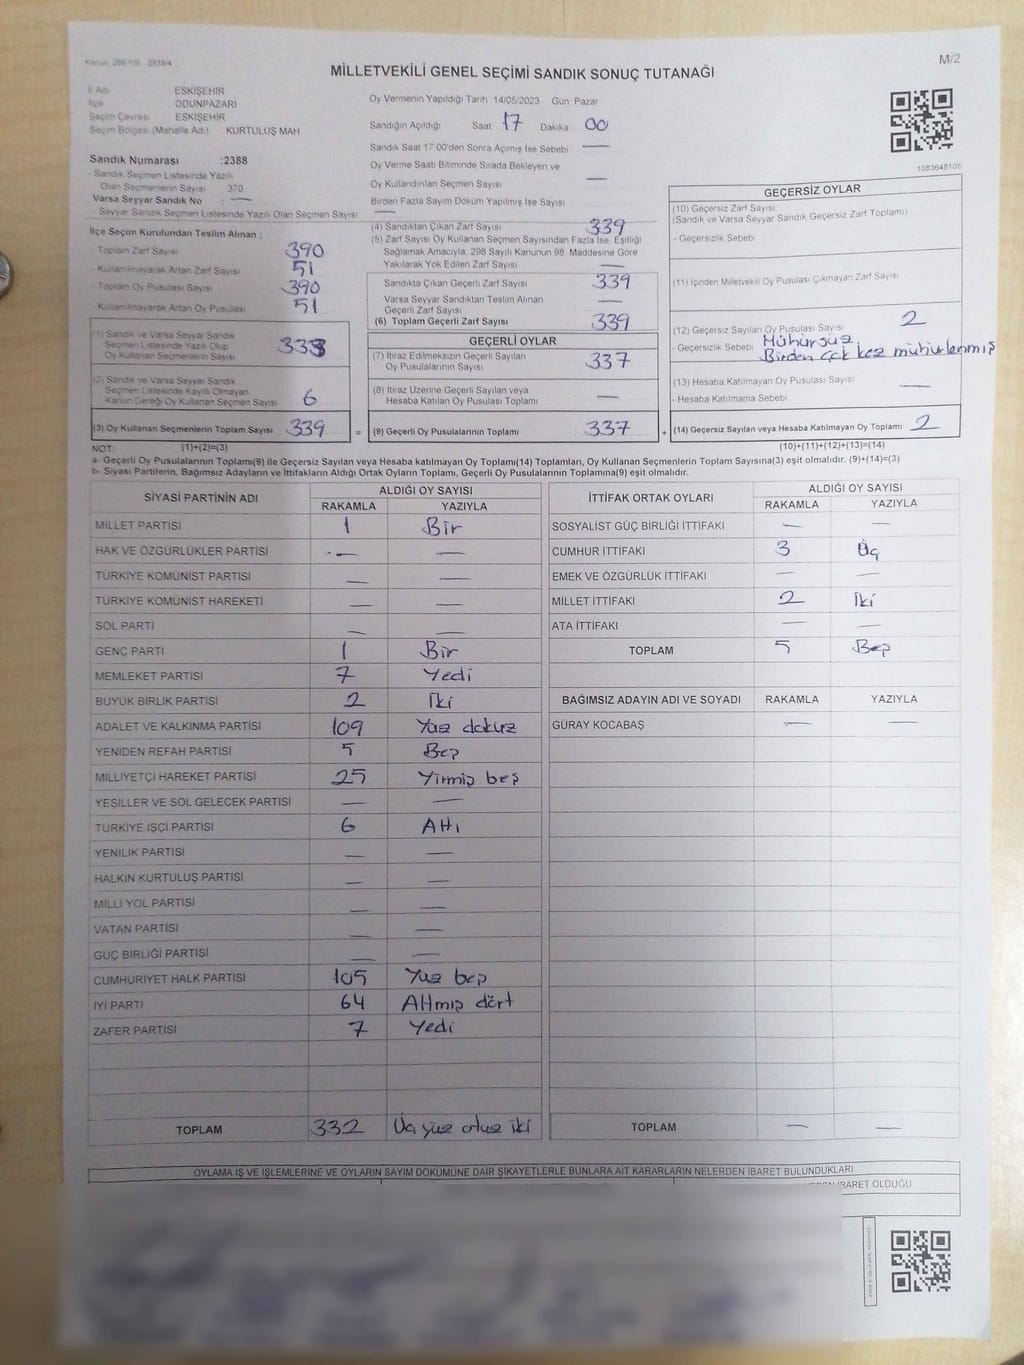 M/2
MİLLETVEKİLİ GENEL SEÇİMİ SANDIK SONUÇ TUTANAĞI
İl Adı ESKİŞEHİR
İlçe ODUNPAZARI
Seçim Çevresi ESKİŞEHİR
Seçim Bölgesi (Mahalle Adı) KURTULUŞ MAH
Sandık Numarası :2388
- Sandık Seçmen Listesinde Yazılı
Olan Seçmenlerin Sayısı 370
Varsa Seyyar Sandık No : —
Seyyar Sandık Seçmen Listesinde Yazılı Olan Seçmen Sayısı: —
Oy Vermenin Yapıldığı Tarih 14/05/2023 Gün Pazar
Sandığın Açıldığı Saat 17 Dakika 00
Sandık Saat 17:00'den Sonra Açılmış İse Sebebi —
Oy Verme Saati Bitiminde Sırada Bekleyen ve
Oy Kullandırılan Seçmen Sayısı —
Birden Fazla Sayım Döküm Yapılmış İse Sayısı
1083648108
İlçe Seçim Kurulundan Teslim Alınan :
- Toplam Zarf Sayısı 390
- Kullanılmayarak Artan Zarf Sayısı 51
- Toplam Oy Pusulası Sayısı 390
- Kullanılmayarak Artan Oy Pusulası 51
(1) Sandık ve Varsa Seyyar Sandık
Seçmen Listesinde Yazılı Olup
Oy Kullanan Seçmenlerin Sayısı 333
(2) Sandık ve Varsa Seyyar Sandık
Seçmen Listesinde Kayıtlı Olmayan
Kanun Gereği Oy Kullanan Seçmen Sayısı 6
(3) Oy Kullanan Seçmenlerin Toplam Sayısı 339 =
(4) Sandıktan Çıkan Zarf Sayısı 339
(5) Zarf Sayısı Oy Kullanan Seçmen Sayısından Fazla İse, Eşitliği
Sağlamak Amacıyla, 298 Sayılı Kanunun 98. Maddesine Göre
Yakılarak Yok Edilen Zarf Sayısı —
Sandıkta Çıkan Geçerli Zarf Sayısı 339
Varsa Seyyar Sandıktan Teslim Alınan
Geçerli Zarf Sayısı —
(6) Toplam Geçerli Zarf Sayısı 339
GEÇERLİ OYLAR
(7) İtiraz Edilmeksizin Geçerli Sayılan
Oy Pusulalarının Sayısı 337
(8) İtiraz Üzerine Geçerli Sayılan veya
Hesaba Katılan Oy Pusulası Toplamı —
(9) Geçerli Oy Pusulalarının Toplamı 337 +
GEÇERSİZ OYLAR
(10) Geçersiz Zarf Sayısı
(Sandık ve Varsa Seyyar Sandık Geçersiz Zarf Toplamı)
- Geçersizlik Sebebi
(11) İçinden Milletvekili Oy Pusulası Çıkmayan Zarf Sayısı
(12) Geçersiz Sayılan Oy Pusulası Sayısı 2
- Geçersizlik Sebebi Mühürsüz
Birden çok kez mühürlenmiş
(13) Hesaba Katılmayan Oy Pusulası Sayısı —
- Hesaba Katılmama Sebebi
(14) Geçersiz Sayılan veya Hesaba Katılmayan Oy Toplamı 2
NOT: (1)+(2)=(3) (10)+(11)+(12)+(13)=(14)
a- Geçerli Oy Pusulalarının Toplamı(9) ile Geçersiz Sayılan veya Hesaba katılmayan Oy Toplamı(14) Toplamları, Oy Kullanan Seçmenlerin Toplam Sayısına(3) eşit olmalıdır. (9)+(14)=(3)
b- Siyasi Partilerin, Bağımsız Adayların ve İttifakların Aldığı Ortak Oyların Toplamı, Geçerli Oy Pusulalarının Toplamına(9) eşit olmalıdır.
SİYASİ PARTİNİN ADI ALDIĞI OY SAYISI
RAKAMLA YAZIYLA
MİLLET PARTİSİ 1 Bir
HAK VE ÖZGÜRLÜKLER PARTİSİ — —
TÜRKİYE KOMÜNİST PARTİSİ — —
TÜRKİYE KOMÜNİST HAREKETİ — —
SOL PARTİ — —
GENÇ PARTİ 1 Bir
MEMLEKET PARTİSİ 7 Yedi
BÜYÜK BİRLİK PARTİSİ 2 İki
ADALET VE KALKINMA PARTİSİ 109 Yüz dokuz
YENİDEN REFAH PARTİSİ 5 Beş
MİLLİYETÇİ HAREKET PARTİSİ 25 Yirmiş beş
YEŞİLLER VE SOL GELECEK PARTİSİ — —
TÜRKİYE İŞÇİ PARTİSİ 6 Altı
YENİLİK PARTİSİ — —
HALKIN KURTULUŞ PARTİSİ — —
MİLLİ YOL PARTİSİ — —
VATAN PARTİSİ — —
GÜÇ BİRLİĞİ PARTİSİ — —
CUMHURİYET HALK PARTİSİ 105 Yüz beş
İYİ PARTİ 64 Altmış dört
ZAFER PARTİSİ 7 Yedi
TOPLAM 332 Üç yüz otuz iki
İTTİFAK ORTAK OYLARI ALDIĞI OY SAYISI
RAKAMLA YAZIYLA
SOSYALİST GÜÇ BİRLİĞİ İTTİFAKI — —
CUMHUR İTTİFAKI 3 Üç
EMEK VE ÖZGÜRLÜK İTTİFAKI — —
MİLLET İTTİFAKI 2 İki
ATA İTTİFAKI — —
TOPLAM 5 Beş
BAĞIMSIZ ADAYIN ADI VE SOYADI RAKAMLA YAZIYLA
GÜRAY KOCABAŞ — —
TOPLAM — —
OYLAMA İŞ VE İŞLEMLERİNE VE OYLARIN SAYIM DÖKÜMÜNE DAİR ŞİKAYETLERLE BUNLARA AİT KARARLARIN NELERDEN İBARET BULUNDUKLARI
İBARET OLDUĞU